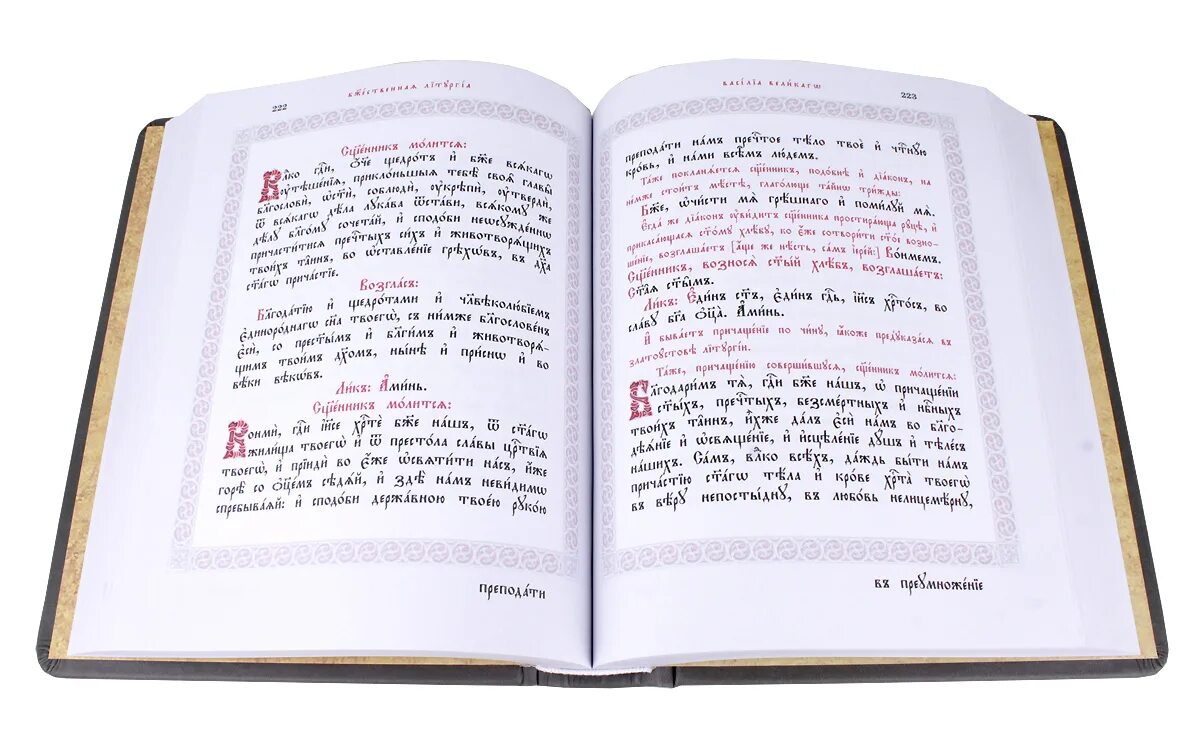 222
Бж҃ственнаѧ лїтꙋргі́а
Сщ҃е́нникъ мо́литсѧ:
Влⷣко гдⷭ҇и, Ѻ҆́ч҃е щедро́тъ и҆ бж҃е всѧ́кагѡ
ᲂу҆тѣше́нїѧ, приклѡ́ньшыѧ тебѣ̀ своѧ̑ главы̑
благословѝ, ѡ҆ст҃ѝ, соблюдѝ, ᲂу҆крѣпѝ, ᲂу҆твердѝ,
ѿ всѧ́кагѡ дѣ́ла лꙋка́ва ѿста́ви, всѧ́комꙋ же
дѣ́лꙋ благо́мꙋ сочета́й, и҆ сподо́би неѡсꙋжде́ннѡ
причасти́тисѧ пречⷭ҇тыхъ си́хъ и҆ животворѧ́щихъ
твои́хъ та̑инъ, во ѡ҆ставле́нїе грѣхѡ́въ, въ дх҃а
ст҃а́гѡ прича́стїе.
Возгла́съ:
Бл҃года́тїю и҆ щедро́тами и҆ чл҃вѣколю́бїемъ
є҆диноро́днагѡ сн҃а твоегѡ̀, съ ни́мже бл҃гослове́нъ
є҆сѝ, со прест҃ы́мъ и҆ бл҃ги́мъ и҆ животворѧ́-
щимъ твои́мъ дх҃омъ, ны́нѣ и҆ при́снѡ и҆ во
вѣ́ки вѣкѡ́въ.
Ли́къ: А҆ми́нь.
Сщ҃е́нникъ мо́литсѧ:
Вонмѝ, гдⷭ҇и і҆и҃се хрⷭ҇тѐ бж҃е на́шъ, ѿ ст҃а́гѡ
жили́ща твоегѡ̀ и҆ ѿ престо́ла сла́вы црⷭ҇твїѧ
твоегѡ̀, и҆ прїидѝ во є҆́же ѡ҆свѧти́ти на́съ, и҆́же
горѣ̀ со ѻ҆ц҃е́мъ сѣдѧ́й, и҆ здѣ̀ на́мъ неви́димѡ
спребыва́ѧй: и҆ сподо́би держа́вною твое́ю рꙋко́ю
препода́ти
Васі́лїа вели́кагѡ
223
преподати на́мъ пречⷭ҇тое тѣ́ло твоѐ и҆ чтⷭ҇нꙋ́ю
кро́вь, и҆ на́ми всѣ̑мъ лю́демъ.
Та́же покланѧ́етсѧ сщ҃е́нникъ, подо́бнѣ и҆ дїа́конъ, на
не́мже стои́тъ мѣ́стѣ, глаго́люще та́йнѡ три́жды:
Бж҃е, ѡ҆чи́сти мѧ̀ грѣ́шнаго и҆ поми́лꙋй мѧ̀.
Є҆гда́ же дїа́конъ ᲂу҆ви́дитъ сщ҃е́нника простира́юща рꙋ́цѣ, и҆
прикаса́ющасѧ ст҃о́мꙋ хлѣ́бꙋ, ко є҆́же сотвори́ти ст҃о́е возно-
ше́нїе, возглаша́етъ [а҆́ще же нѣ́сть, са́мъ і҆ере́й:] Во́нмемъ.
Сщ҃е́нникъ, возносѧ̀ ст҃ы́й хлѣ́бъ, возглаша́етъ:
Ст҃а̑ѧ ст҃ы̑мъ.
Ли́къ: Є҆ди́нъ ст҃ъ, є҆ди́нъ гдⷭ҇ь, і҆и҃съ хрⷭ҇то́съ, во
сла́вꙋ бг҃а ѻ҆ц҃а̀. А҆ми́нь.
И҆ быва́етъ причаще́нїе по чи́нꙋ, ꙗ҆́коже предꙋказа́сѧ въ
златоꙋ́стовѣ лїтꙋргі́и.
Та́же, причаще́нїю соверши́вшꙋсѧ, сщ҃е́нникъ мо́литсѧ:
Благодари́мъ тѧ̀, гдⷭ҇и бж҃е на́шъ, ѡ҆ причаще́нїи
ст҃ы́хъ, пречⷭ҇тыхъ, безсме́ртныхъ и҆ нбⷭ҇ныхъ
твои́хъ та̑инъ, и҆̀хже да́лъ є҆сѝ на́мъ во бл҃го-
дѣѧ́нїе и҆ ѡ҆свѧще́нїе, и҆ и҆сцѣле́нїе дꙋ́шъ и҆ тѣле́съ
на́шихъ. Са́мъ, влⷣко всѣ́хъ, да́ждь бы́ти на́мъ
прича́стїю ст҃а́гѡ тѣ́ла и҆ кро́ве хрⷭ҇та̀ твоегѡ̀
въ вѣ́рꙋ непосты́днꙋ, въ любо́вь нелицемѣ́рнꙋ,
въ преꙋмноже́нїе